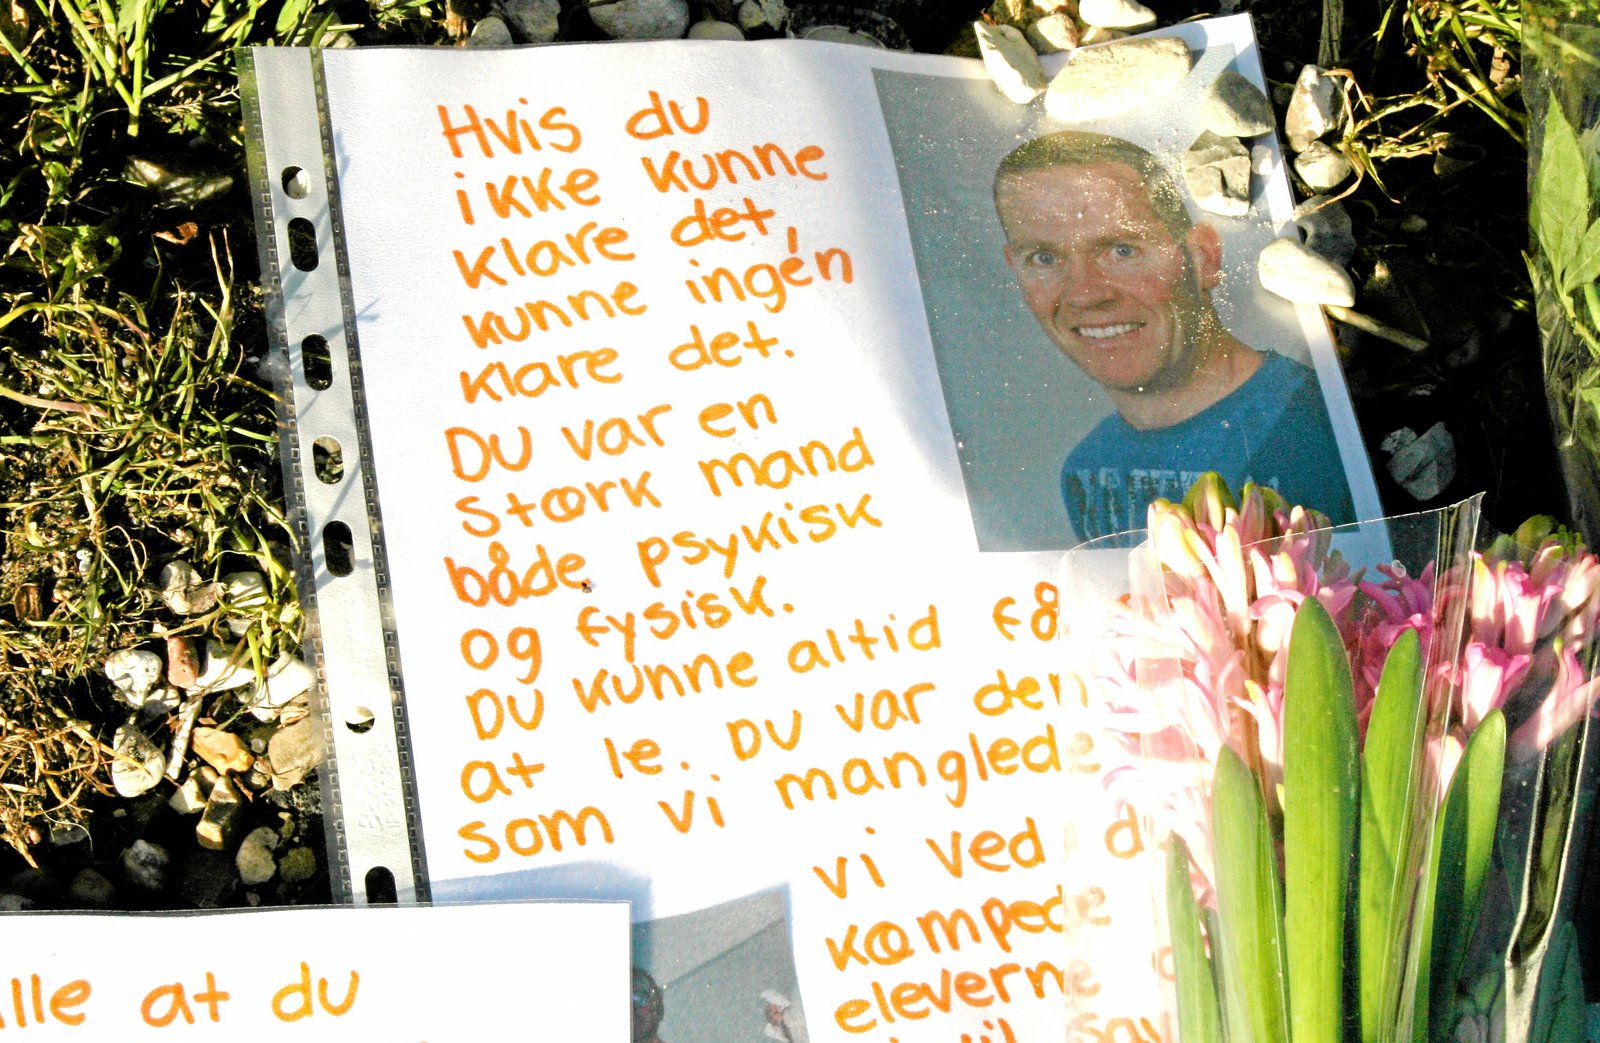 Hvis du
ikke kunne
klare det,
kunne ingén
klare det.
Du var en
stærk mand
både psykisk
og fysisk.
Du kunne altid få
at le. Du var den
som vi manglede
vi ved
kæmpede
eleverne
til sav
at du